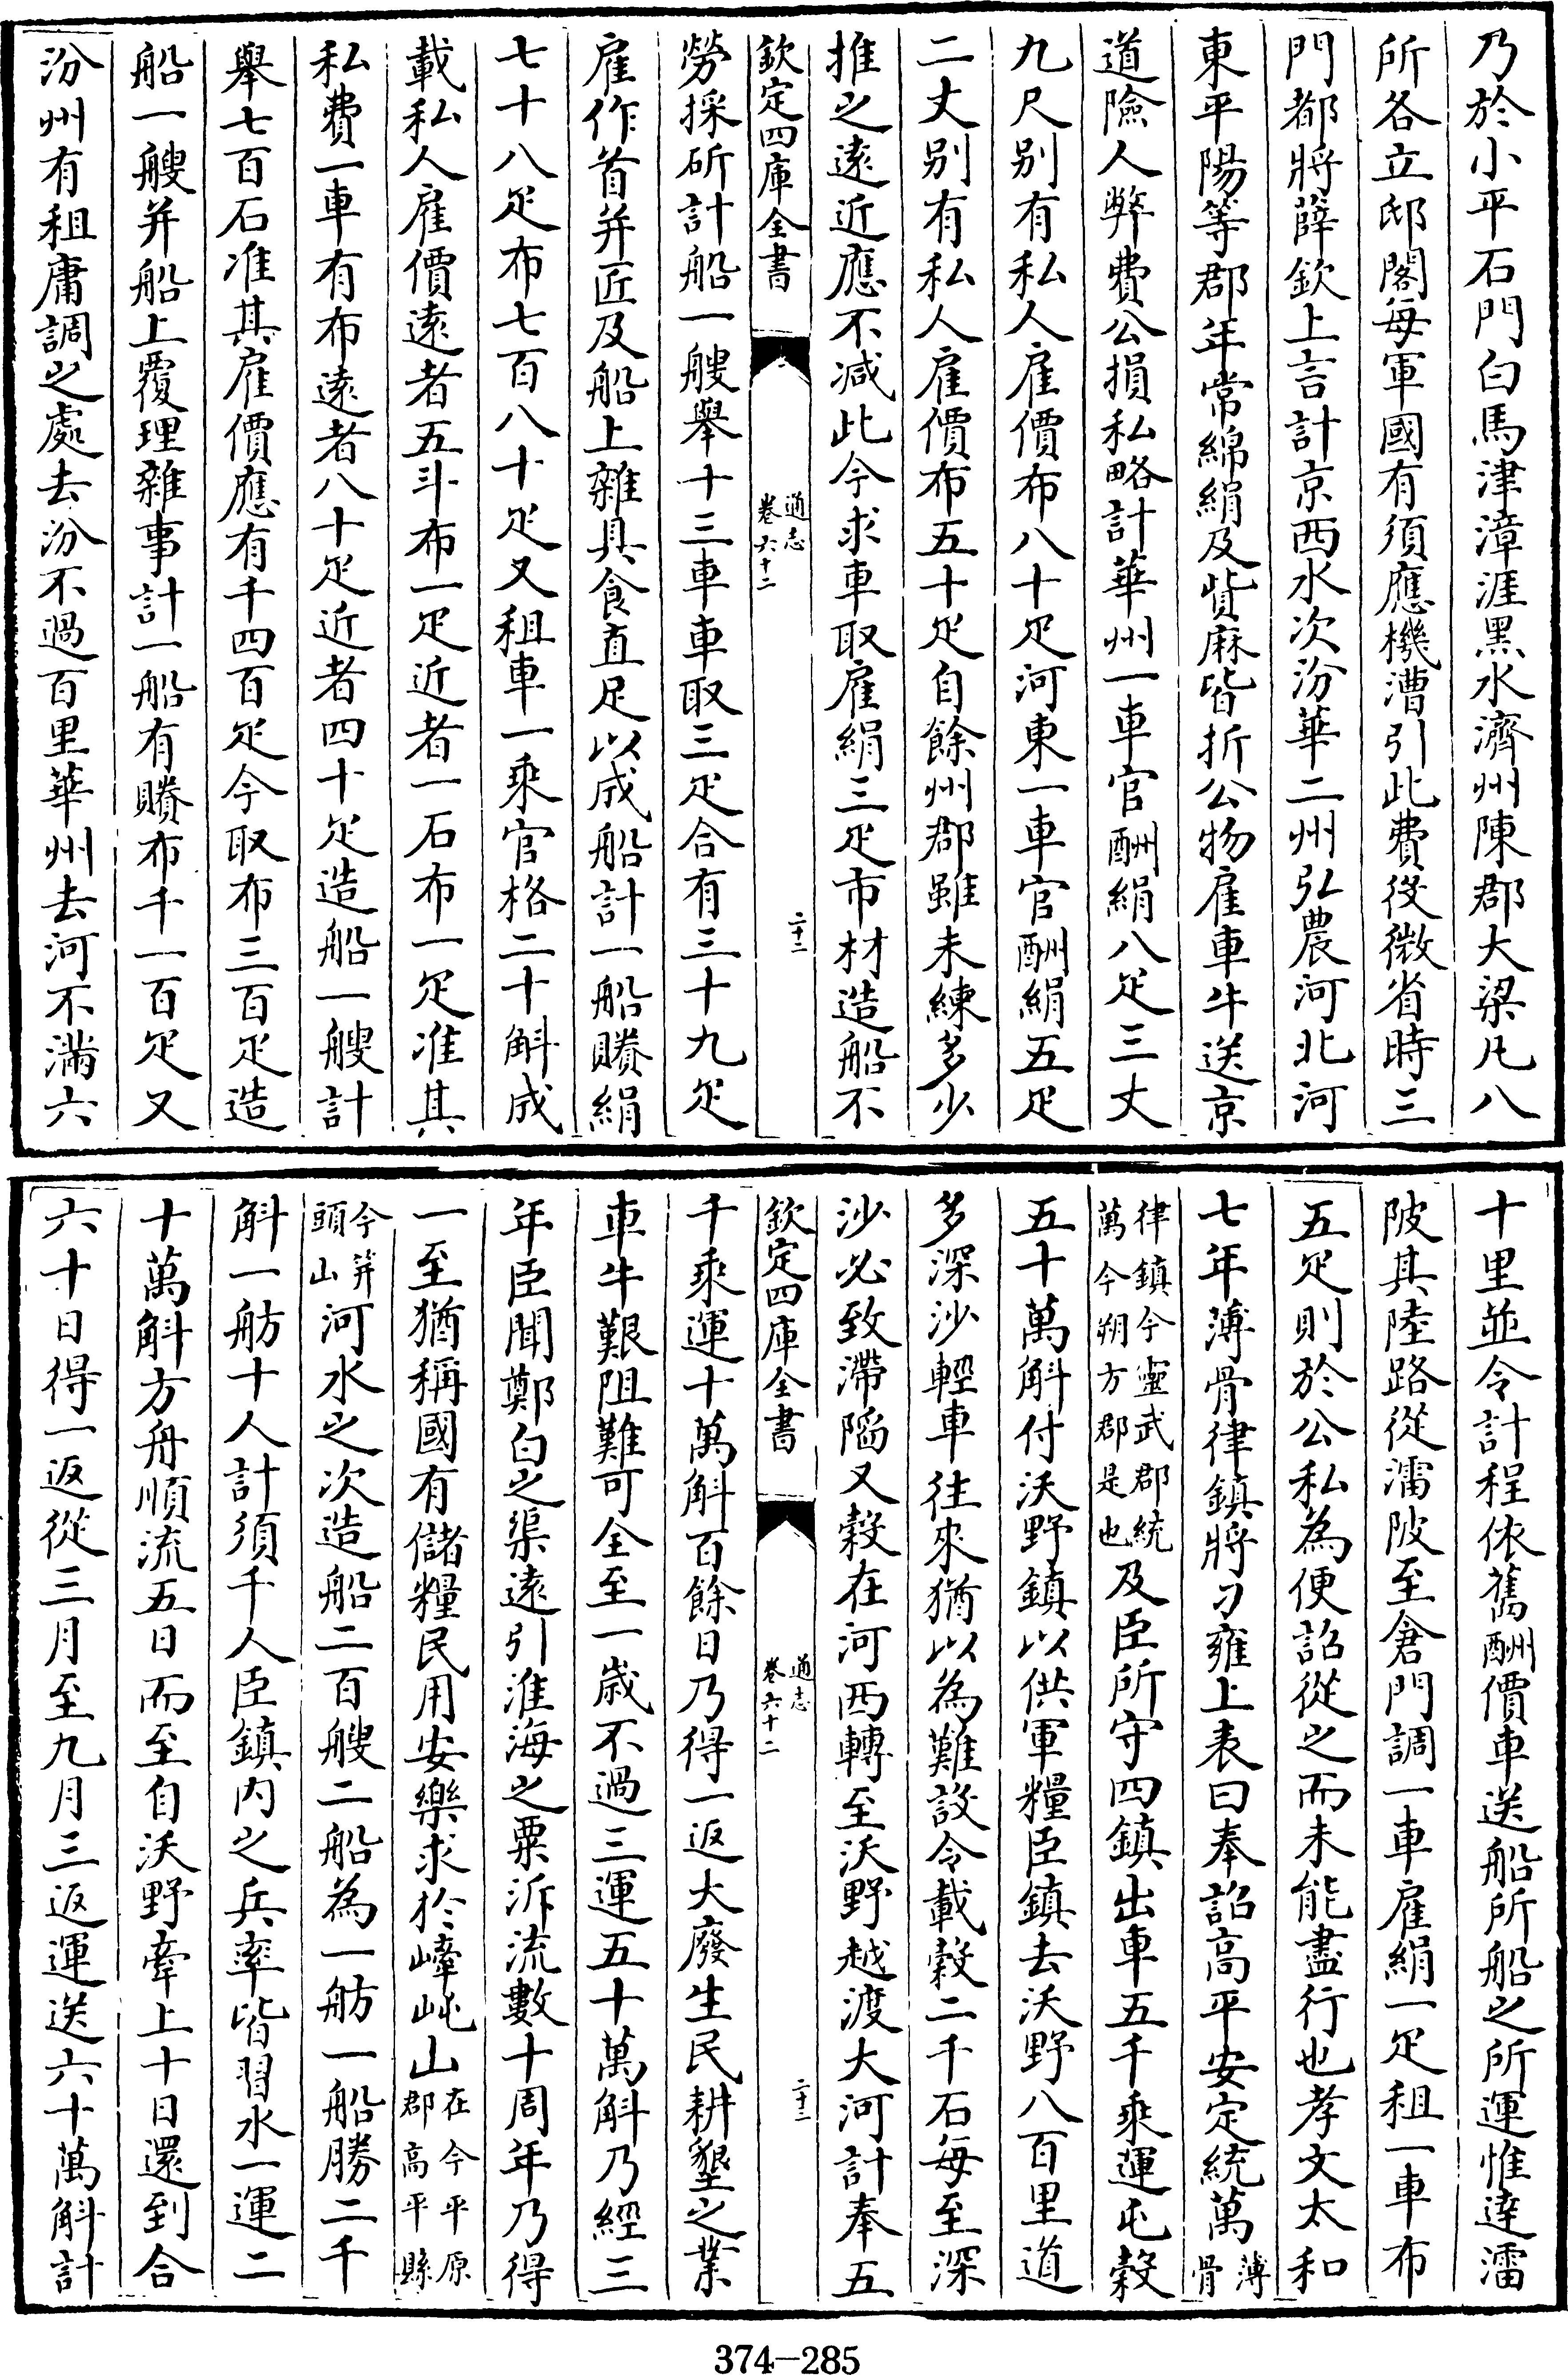 乃於小平石門白馬津漳涯黑水濟州陳郡大梁凡八
所各立邸閣每軍國有須應機漕引此費役微省時三
門都將薛欽上言計京西水次汾華二州弘農河北河
東平陽等郡年常綿絹及貲麻皆折公物雇車牛送京
道險人弊費公損私略計華州一車官酬絹八疋三丈
九尺别有私人雇價布八十疋河東一車官酬絹五疋
二丈别有私人雇價布五十疋自餘州郡雖未練多少
推之遠近應不減此今求車取雇絹三疋市材造船不
欽定四庫全書
通志
卷六十二
二十二
勞採斫計船一艘舉十三車車取三疋合有三十九疋
雇作首并匠及船上雜具食直足以成船計一船賸絹
七十八疋布七百八十疋又租車一乘官格二十斛成
載私人雇價遠者五斗布一疋近者一石布一疋准其
私費一車有布遠者八十疋近者四十疋造船一艘計
舉七百石准其雇價應有千四百疋今取布三百疋造
船一艘并船上覆理雜事計一船有賸布千一百疋又
汾州有租庸調之處去汾不過百里華州去河不滿六
十里並令計程依舊酬價車送船所船之所運惟達潘
陂其陸路從潘陂至倉門調一車雇絹一疋租一車布
五疋則於公私為便詔從之而未能盡行也孝文太和
七年薄骨律鎮將刁雍上表曰奉詔高平安定統萬薄骨
律鎮今靈武郡統萬今朔方郡是也及臣所守四鎮出車五千乘運屯穀
五十萬斛付沃野鎮以供軍糧臣鎮去沃野八百里道
多深沙輕車往來猶以為難設令載穀二千石每至深
沙必致滯陷又穀在河西轉至沃野越渡大河計奉五
欽定四庫全書
通志
卷六十二
二十三
千乘運十萬斛百餘日乃得一返大廢生民耕墾之業
車牛艱阻難可全至一歲不過三運五十萬斛乃經三
年臣聞鄭白之渠遠引淮海之粟泝流數十周年乃得
一至猶稱國有儲糧民用安樂求於㟂屯山在今平原郡高平縣
今笄頭山河水之次造船二百艘二船為一舫一船勝二千
斛一舫十人計須千人臣鎮内之兵率皆習水一運二
十萬斛方舟順流五日而至自沃野牽上十日還到合
六十日得一返從三月至九月三返運送六十萬斛計
374-285